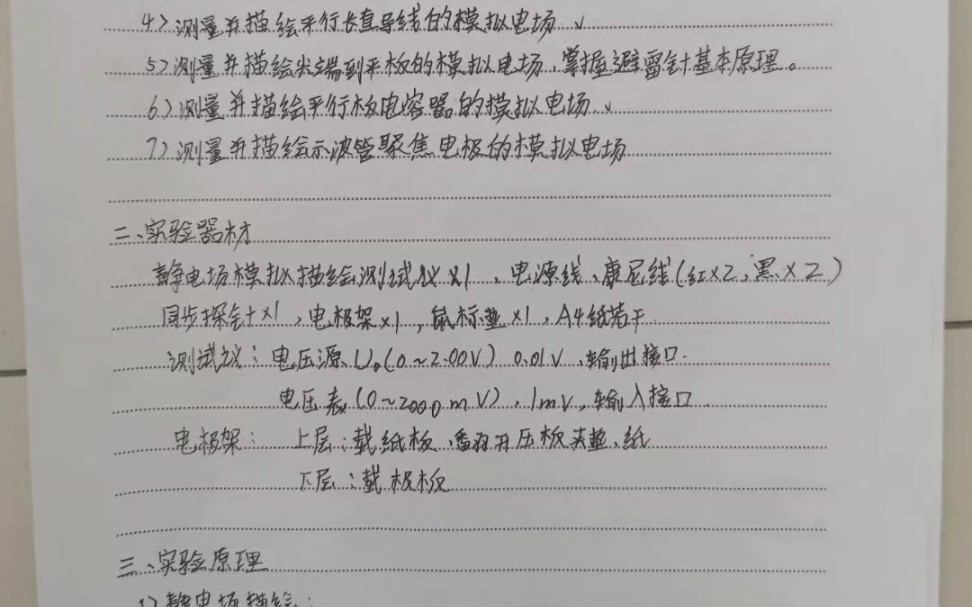 4>测量并描绘平行长直导线的模拟电场 ✓
5>测量并描绘尖端到平板的模拟电场,掌握避雷针基本原理。
6>测量并描绘平行板电容器的模拟电场 ✓
7>测量并描绘示波管聚焦电极的模拟电场
二、实验器材
静电场模拟描绘测试仪×1、电源线、康尼线(红×2,黑×2)
同步探针×1,电极架×1,鼠标垫×1,A4纸若干
测试仪:电压源U。(0~2.00V) 0.01V,输出接口.
电压表(0~2000mV),1mV,输入接口
电极架: 上层:载纸板,翻开压板夹垫、纸
下层:载极板
三、实验原理
1>静电场描绘: